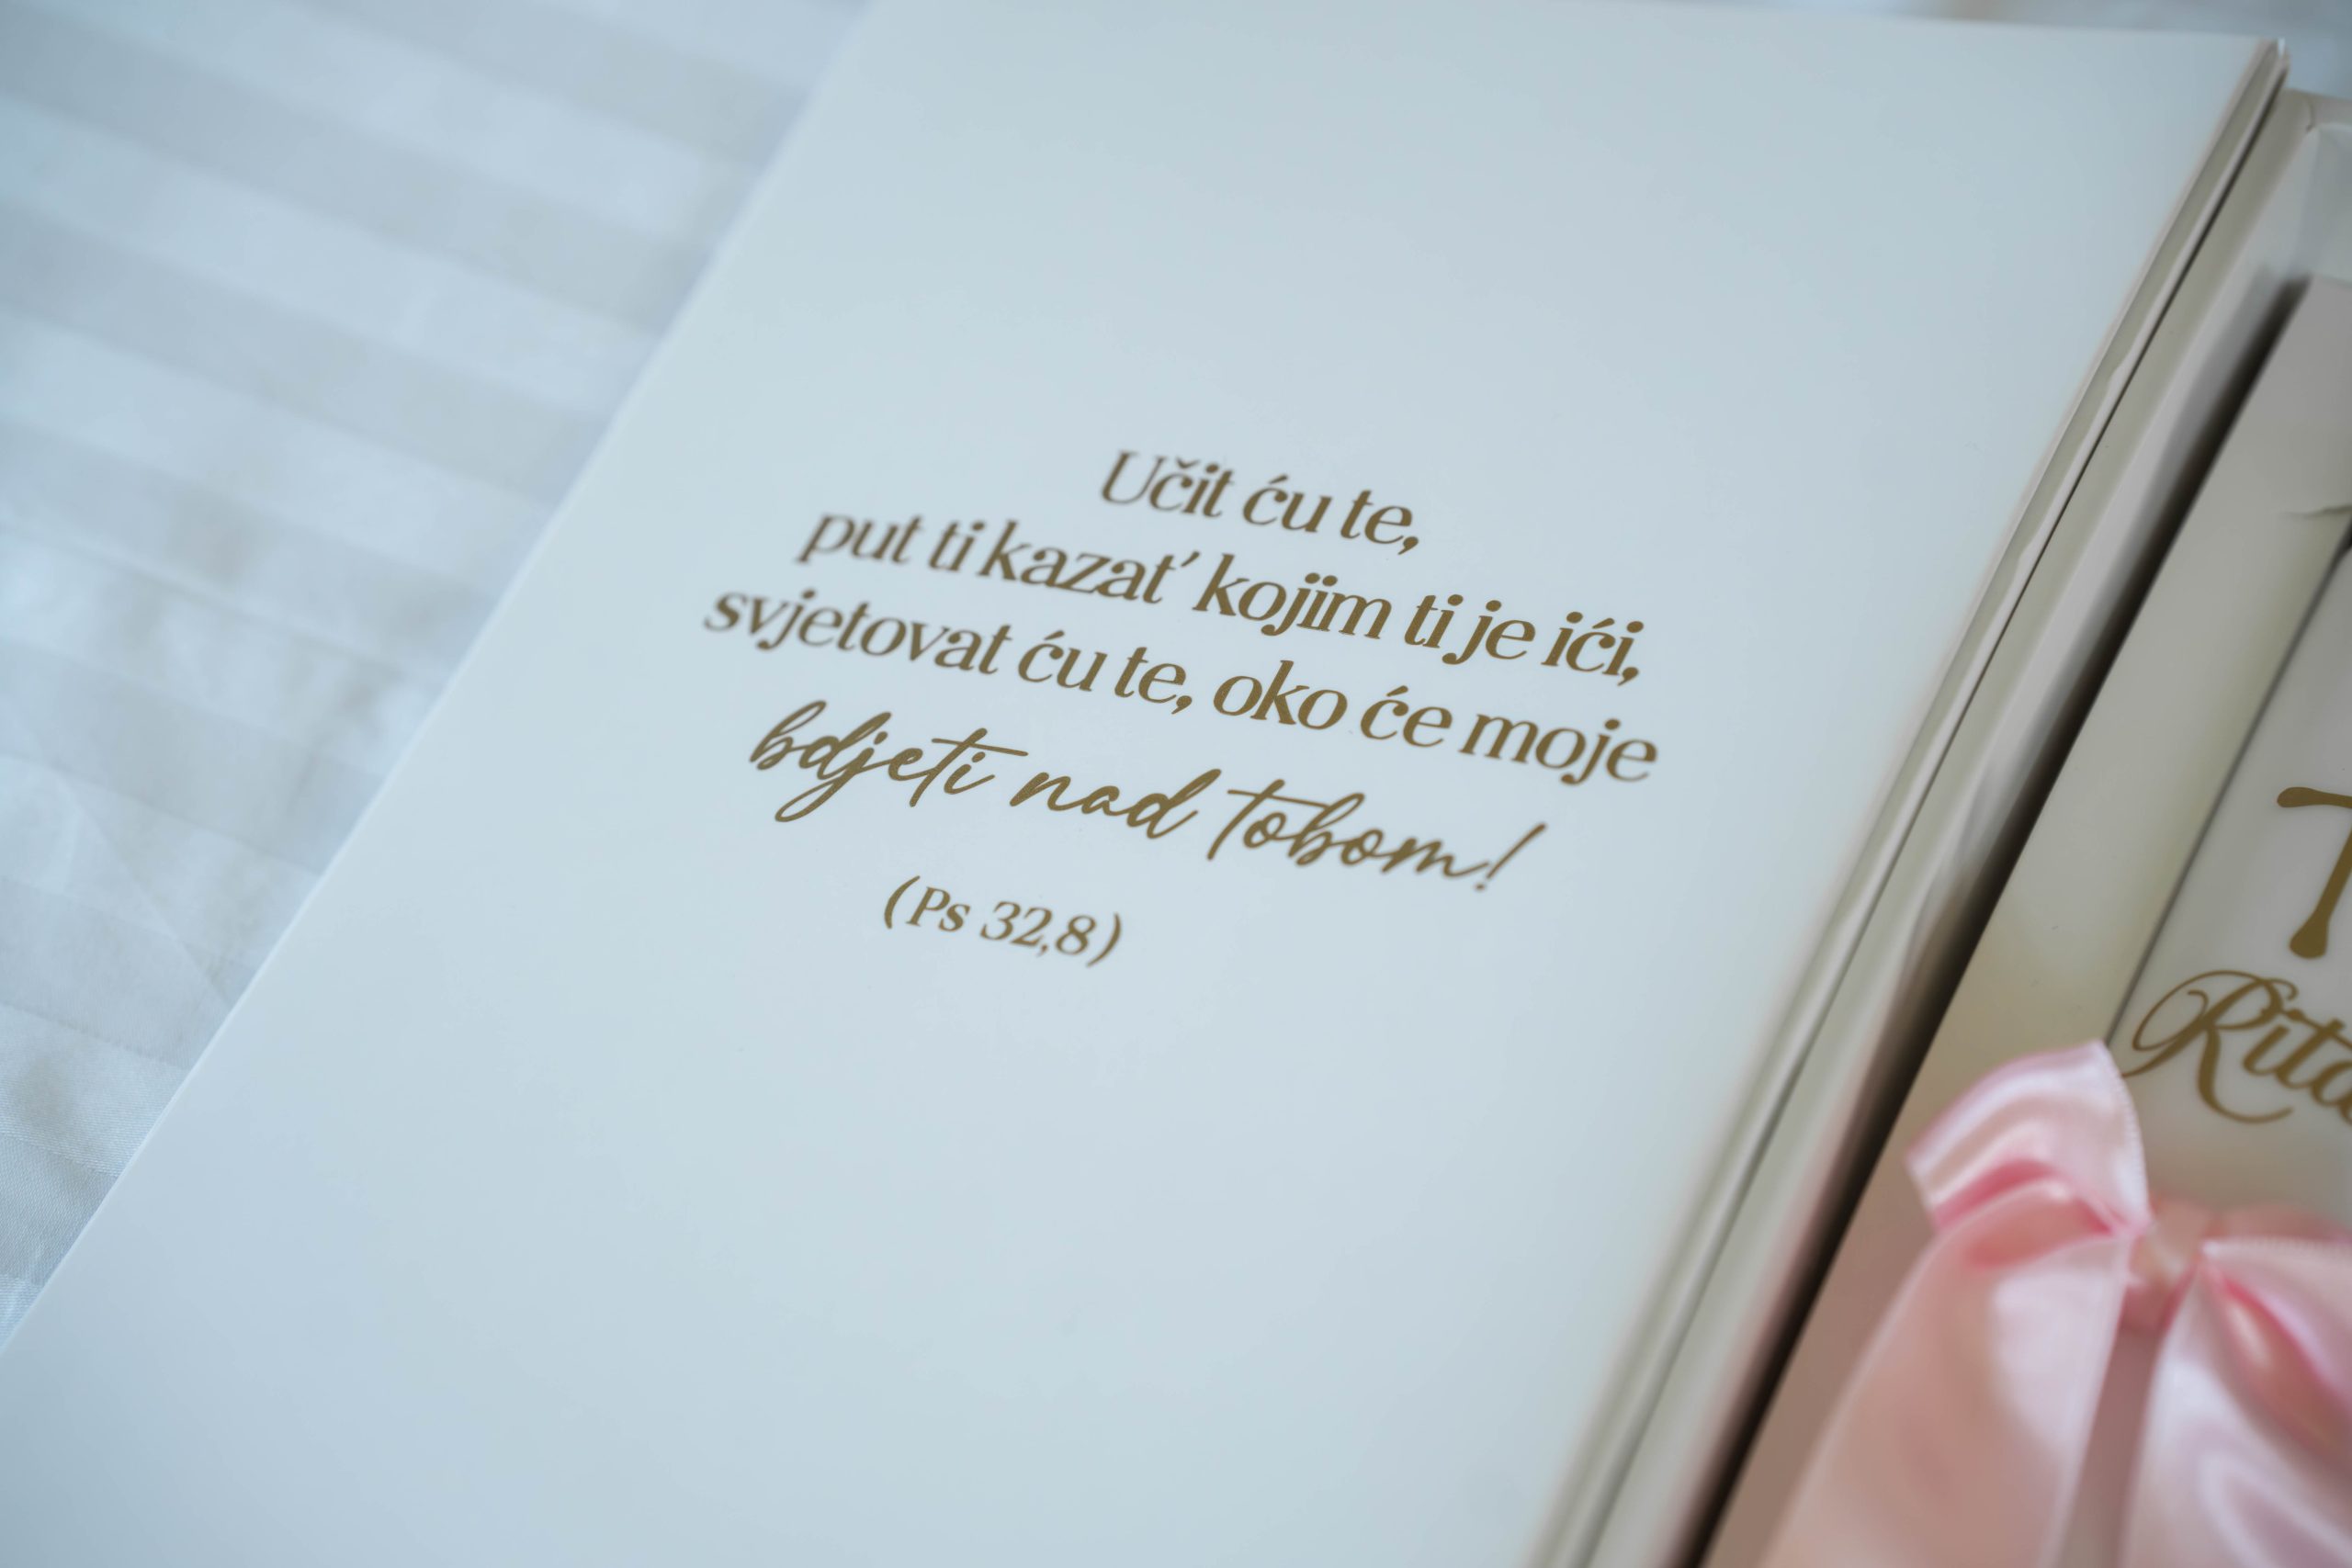 Učit ću te,
put ti kazat' kojim ti je ići,
svjetovat ću te, oko će moje
bdjeti nad tobom!
(Ps 32,8)